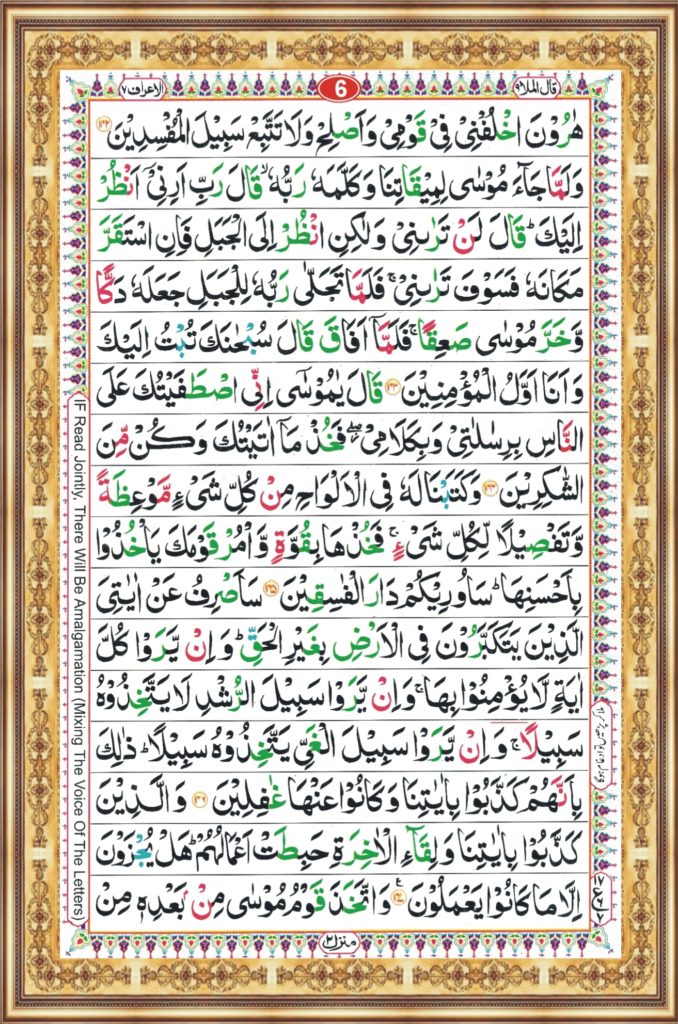 قال الملا ٩
6
الاعراف ٧
هٰرُوْنَ اخْلُفْنِیْ فِیْ قَوْمِیْ وَاَصْلِحْ وَلَا تَتَّبِعْ سَبِیْلَ الْمُفْسِدِیْنَ ۝۱۴۲
وَلَمَّا جَآءَ مُوْسٰی لِمِیْقَاتِنَا وَكَلَّمَهٗ رَبُّهٗ ۙ قَالَ رَبِّ اَرِنِیْۤ اَنْظُرْ
اِلَیْكَ ؕ قَالَ لَنْ تَرٰىنِیْ وَلٰكِنِ انْظُرْ اِلَی الْجَبَلِ فَاِنِ اسْتَقَرَّ
مَكَانَهٗ فَسَوْفَ تَرٰىنِیْ ۚ فَلَمَّا تَجَلّٰی رَبُّهٗ لِلْجَبَلِ جَعَلَهٗ دَكًّا
وَّخَرَّ مُوْسٰی صَعِقًا ۚ فَلَمَّاۤ اَفَاقَ قَالَ سُبْحٰنَكَ تُبْتُ اِلَیْكَ
وَاَنَا اَوَّلُ الْمُؤْمِنِیْنَ ۝۱۴۳ قَالَ یٰمُوْسٰۤی اِنِّی اصْطَفَیْتُكَ عَلَی
النَّاسِ بِرِسٰلٰتِیْ وَبِكَلَامِیْ ۖ فَخُذْ مَاۤ اٰتَیْتُكَ وَكُنْ مِّنَ
الشّٰكِرِیْنَ ۝۱۴۴ وَكَتَبْنَا لَهٗ فِی الْاَلْوَاحِ مِنْ كُلِّ شَیْءٍ مَّوْعِظَةً
وَّتَفْصِیْلًا لِّكُلِّ شَیْءٍ ۚ فَخُذْهَا بِقُوَّةٍ وَّاْمُرْ قَوْمَكَ یَاْخُذُوْا
بِاَحْسَنِهَا ؕ سَاُورِیْكُمْ دَارَ الْفٰسِقِیْنَ ۝۱۴۵ سَاَصْرِفُ عَنْ اٰیٰتِیَ
الَّذِیْنَ یَتَكَبَّرُوْنَ فِی الْاَرْضِ بِغَیْرِ الْحَقِّ ؕ وَاِنْ یَّرَوْا كُلَّ
اٰیَةٍ لَّا یُؤْمِنُوْا بِهَا ۚ وَاِنْ یَّرَوْا سَبِیْلَ الرُّشْدِ لَا یَتَّخِذُوْهُ
سَبِیْلًا ۚ وَاِنْ یَّرَوْا سَبِیْلَ الْغَیِّ یَتَّخِذُوْهُ سَبِیْلًا ؕ ذٰلِكَ
بِاَنَّهُمْ كَذَّبُوْا بِاٰیٰتِنَا وَكَانُوْا عَنْهَا غٰفِلِیْنَ ۝۱۴۶ وَالَّذِیْنَ
كَذَّبُوْا بِاٰیٰتِنَا وَلِقَآءِ الْاٰخِرَةِ حَبِطَتْ اَعْمَالُهُمْ ؕ هَلْ یُجْزَوْنَ
اِلَّا مَا كَانُوْا یَعْمَلُوْنَ ۝۱۴۷ وَاتَّخَذَ قَوْمُ مُوْسٰی مِنْۢ بَعْدِهٖ مِنْ
منزل ٢
IF Read Jointly, There Will Be Amalgamation (Mixing The Voice Of The Letters)